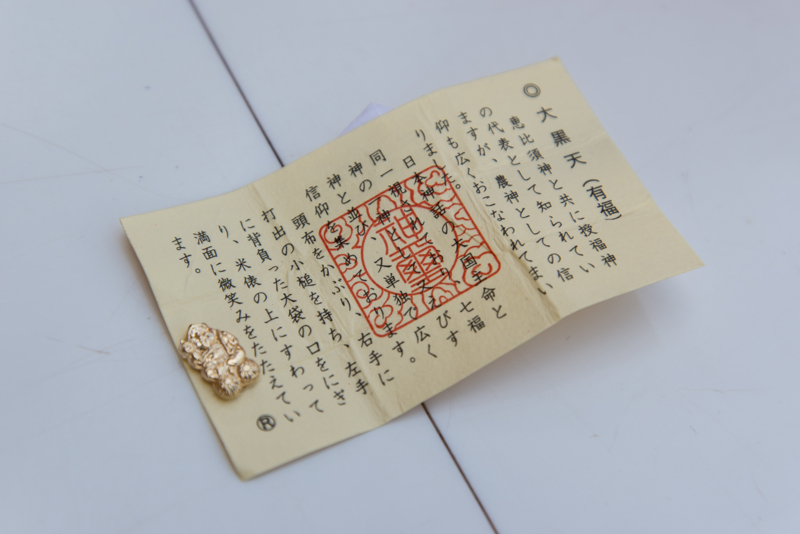 ◎ 大黒天(有福)
恵比須神と共に授福神
の代表として知られてい
ますが、農神としての信
仰も広くおこなわれてまい
りました。
日本神話の大国主命と
同一視されており、七福
神の一神として又えびす
神と並び、又単独で広く
信仰を集めております。
頭布をかぶり、右手に
打出の小槌を持ち、左手
に背負った大袋の口をにぎ
り、米俵の上にすわって
満面に微笑みをたたえてい
ます。
Ⓡ